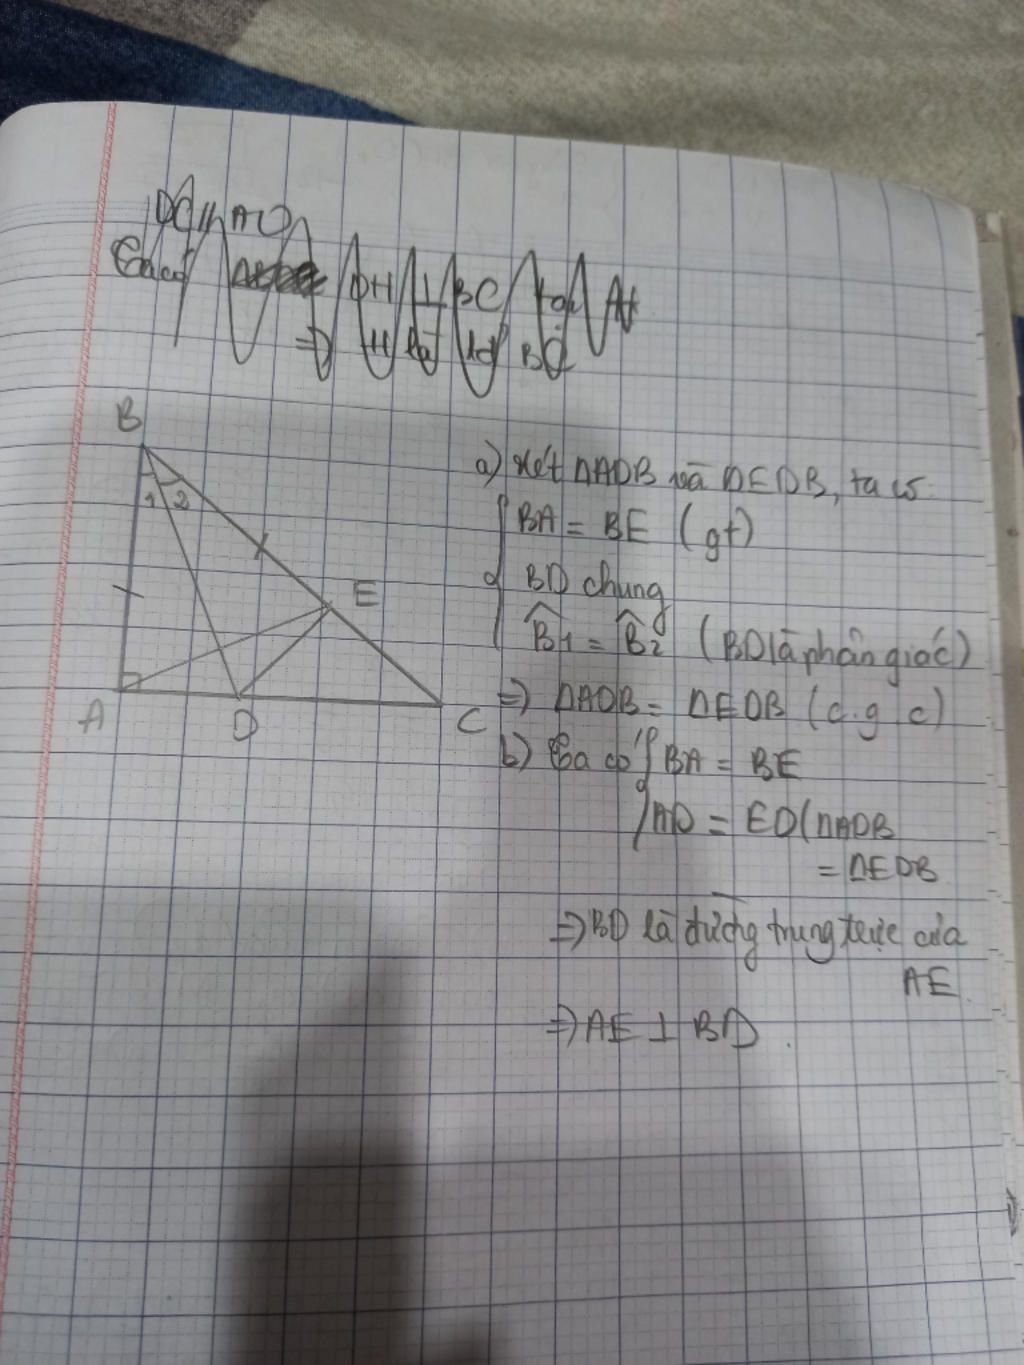 DC // AD
Ta có DH ⊥ BC tại H
=> H là BC
B
1 2
E
A
D
C
a) Xét ΔADB và ΔEDB, ta có
BA = BE (gt)
BD chung
B̂1 = B̂2 (BD là phân giác)
=> ΔADB = ΔEDB (c.g c)
b) Ta có BA = BE
AD = ED (ΔADB
= ΔEDB
=> BD là đường trung trực của
AE.
=> AE ⊥ BD.